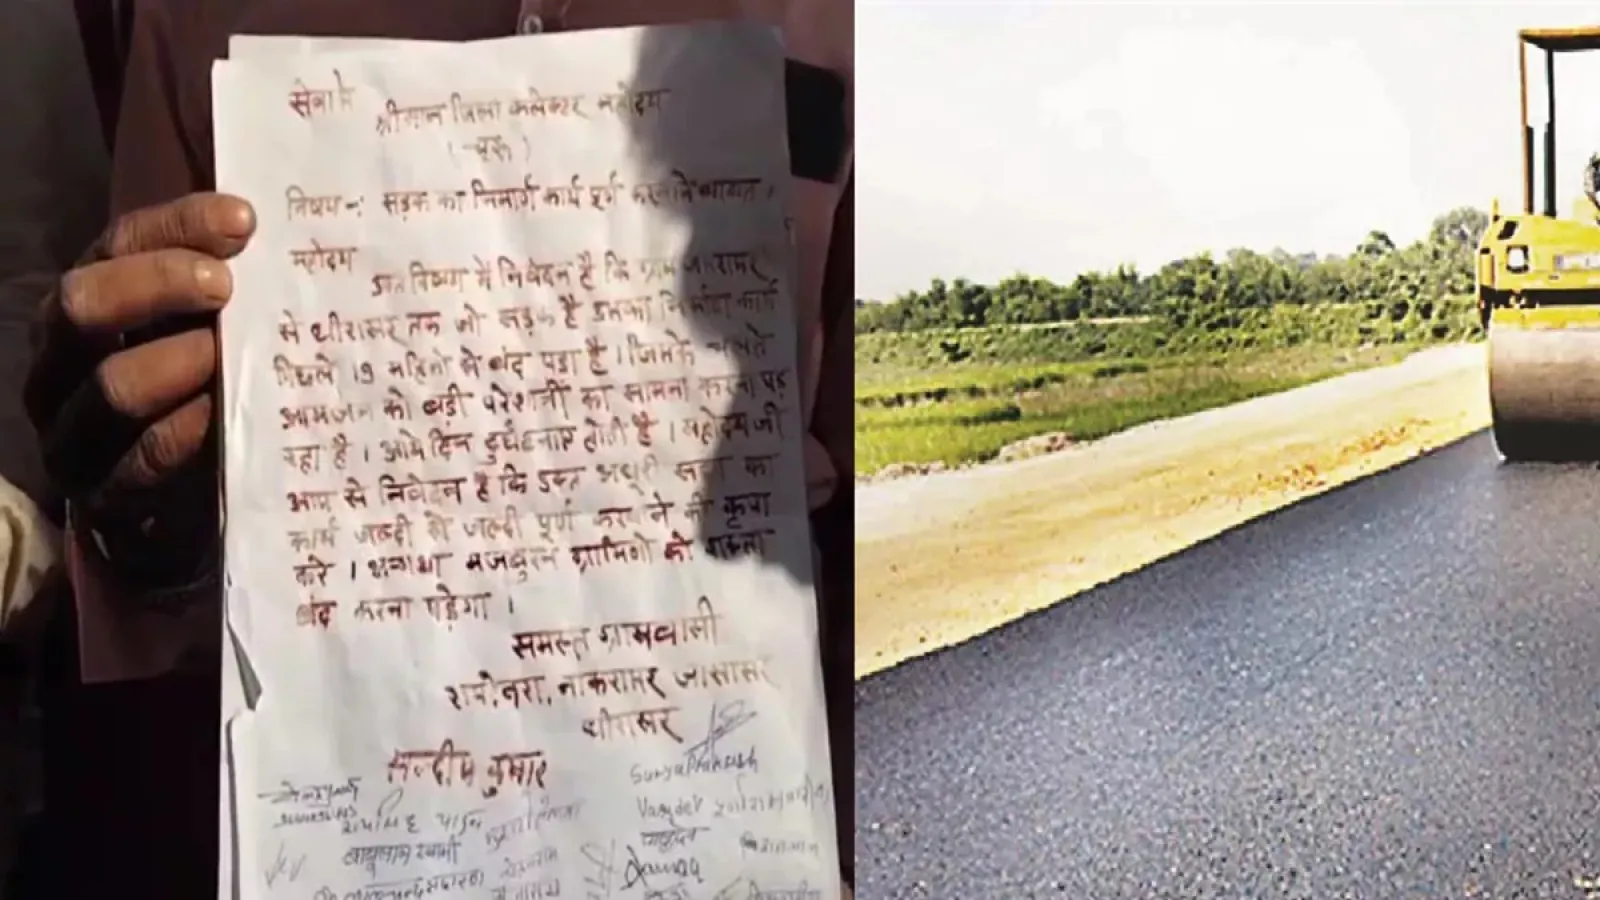 सेवा में
श्रीमान जिला कलेक्टर महोदय
(चुरू)
विषय -: सड़क का निमार्ण कार्य पूर्ण करवाने बाबत ।
महोदय
उक्त विषय में निवेदन है कि ग्राम जासासर
से धीरासर तक जो सड़क है उसका निर्माण कार्य
पिछले 19 महिनो से बंद पड़ा है । जिसके चलते
आमजन को बड़ी परेशानीं का सामना करना पड़
रहा है । आये दिन दुर्घटनाए होती है । महोदय जी
आप से निवेदन है कि उक्त अधुरी सड़क का
कार्य जल्दी से जल्दी पूर्ण करवाने की कृपा
करे । अन्यथा मजबुरन ग्रामिणो को रास्ता
बंद करना पड़ेगा ।
समस्त ग्रामवासी
नाकरासर, जासासर
धीरासर
सन्दीप कुमार
Surya Prakash
Vasudev
बाबुलाल स्वामी